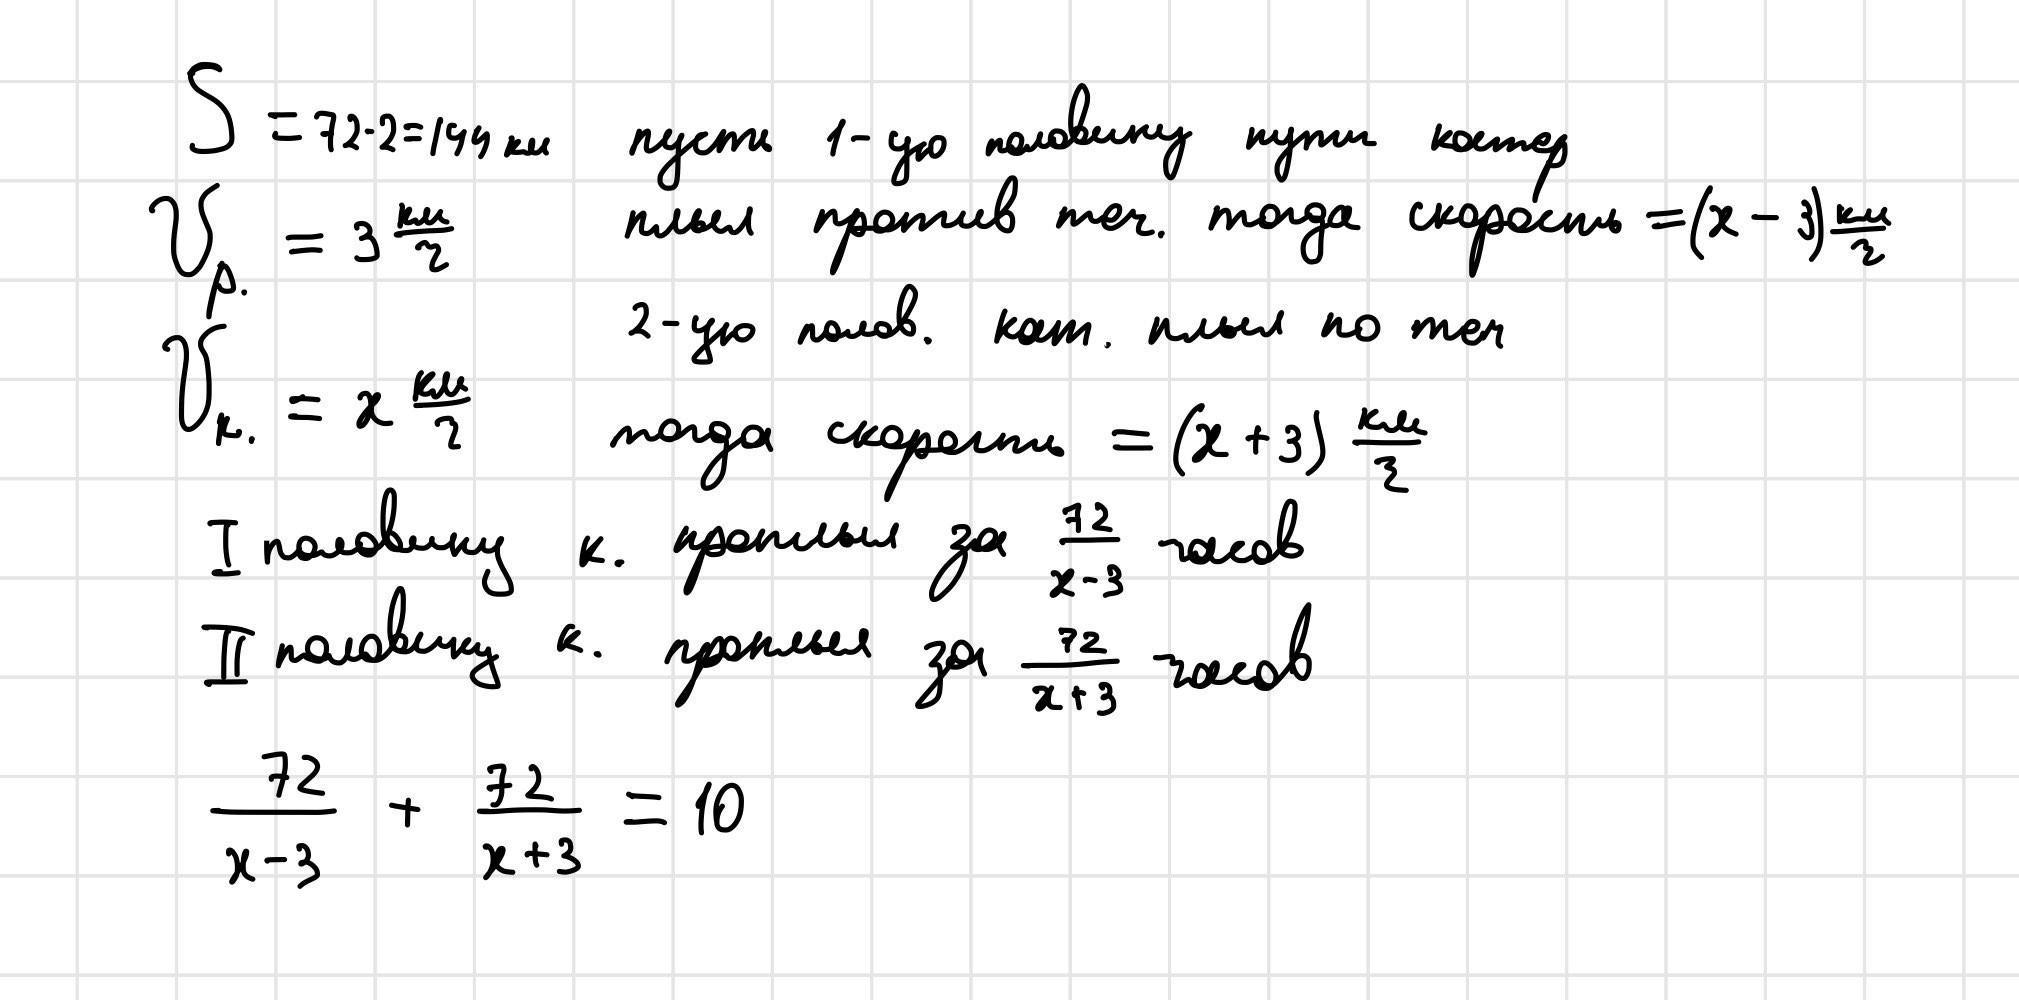 S = 72·2=144 км пусть 1-ую половину пути катер
Vр. = 3 км/ч плыл против теч. тогда скорость = (x - 3) км/ч
2-ую полов. кат. плыл по теч
Vк. = x км/ч тогда скорость = (x + 3) км/ч
I половину к. проплыл за 72/(x-3) часов
II половину к. проплыл за 72/(x+3) часов
72/(x-3) + 72/(x+3) = 10